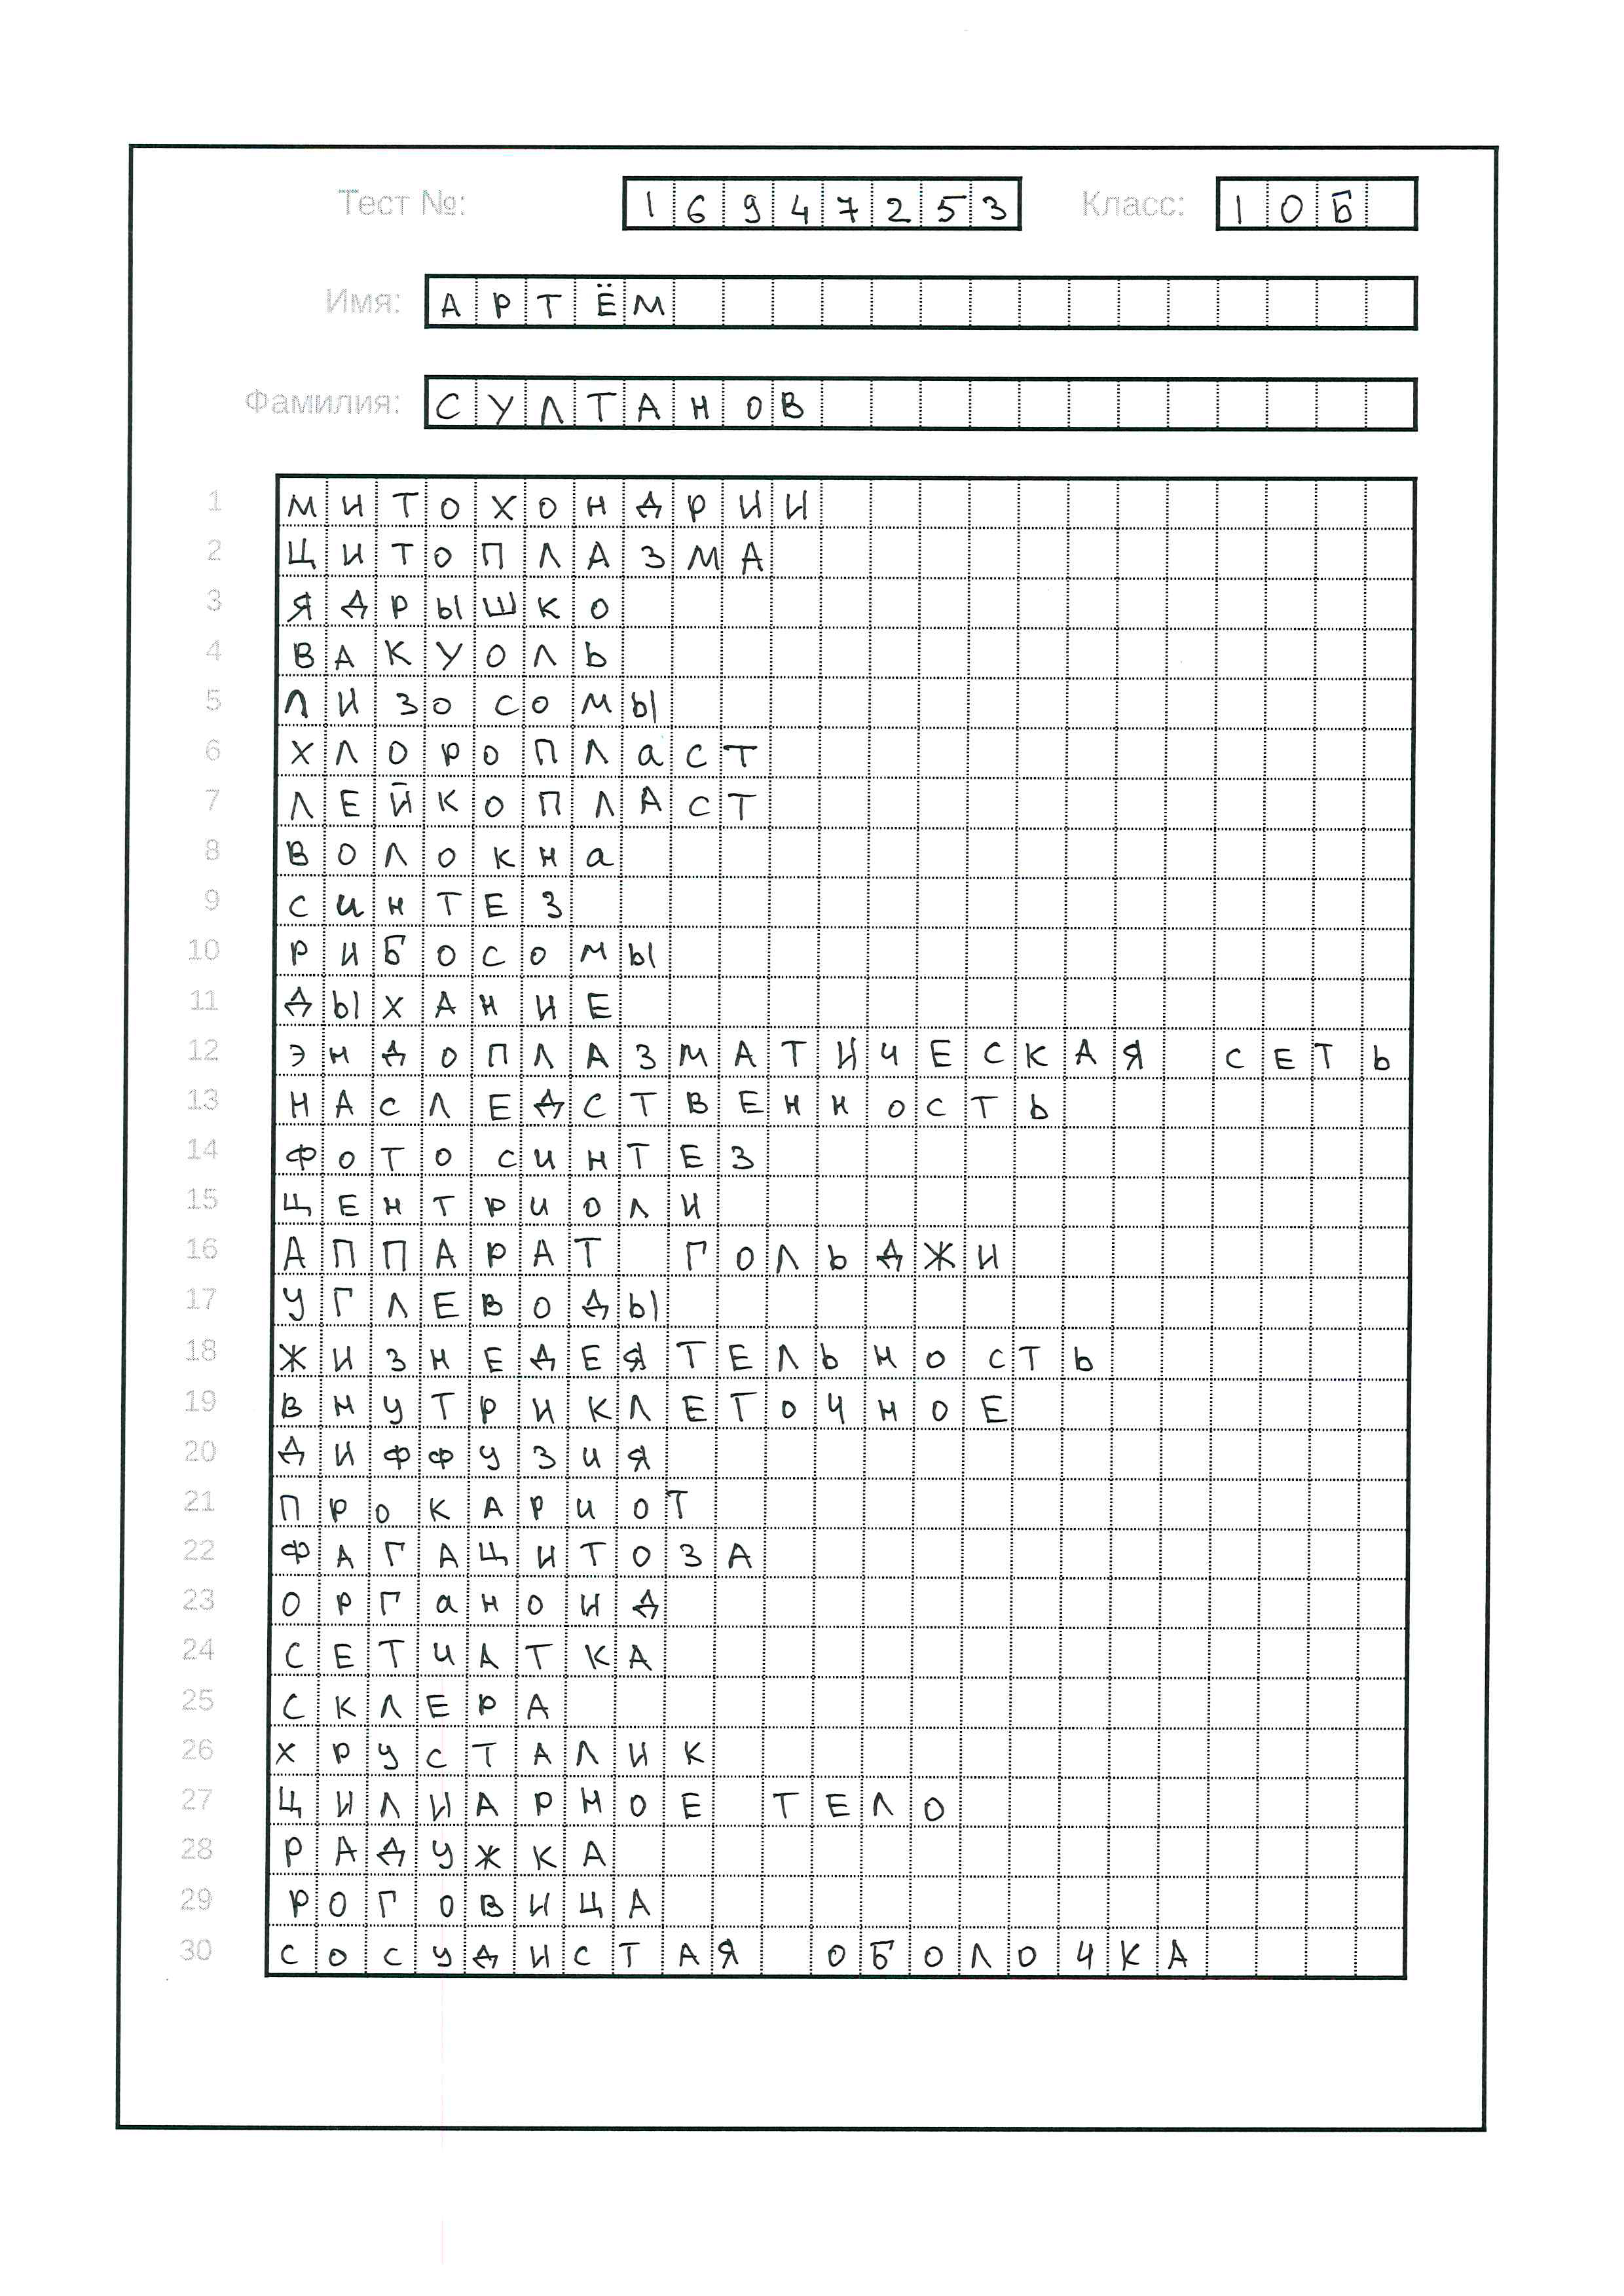 Тест №: 16947253 Класс: 10Б
Имя: АРТЁМ
Фамилия: СУЛТАНОВ
1 МИТОХОНДРИИ
2 ЦИТОПЛАЗМА
3 ЯДРЫШКО
4 ВАКУОЛЬ
5 ЛИЗОСОМЫ
6 ХЛОРОПЛаСТ
7 ЛЕЙКОПЛАСТ
8 ВОЛОКНа
9 СИНТЕЗ
10 РИБОСОМЫ
11 ДЫХАНИЕ
12 ЭНДОПЛАЗМАТИЧЕСКАЯ СЕТЬ
13 НАСЛЕДСТВЕННОСТЬ
14 ФОТОСИНТЕЗ
15 ЦЕНТРИОЛИ
16 АППАРАТ ГОЛЬДЖИ
17 УГЛЕВОДЫ
18 ЖИЗНЕДЕЯТЕЛЬНОСТЬ
19 ВНУТРИКЛЕТОЧНОЕ
20 ДИФФУЗИЯ
21 ПРОКАРИОТ
22 ФАГАЦИТОЗА
23 ОРГаНОИД
24 СЕТЧАТКА
25 СКЛЕРА
26 ХРУСТАЛИК
27 ЦИЛИАРНОЕ ТЕЛО
28 РАДУЖКА
29 РОГОВИЦА
30 СОСУДИСТАЯ ОБОЛОЧКА